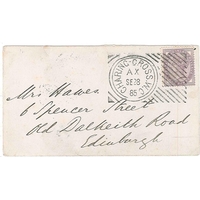 CHARING-CROSS.W.C
AX
SE 28
85
Mrs Hawes
6 Spencer Street
Old Dalkeith Road
Edinburgh